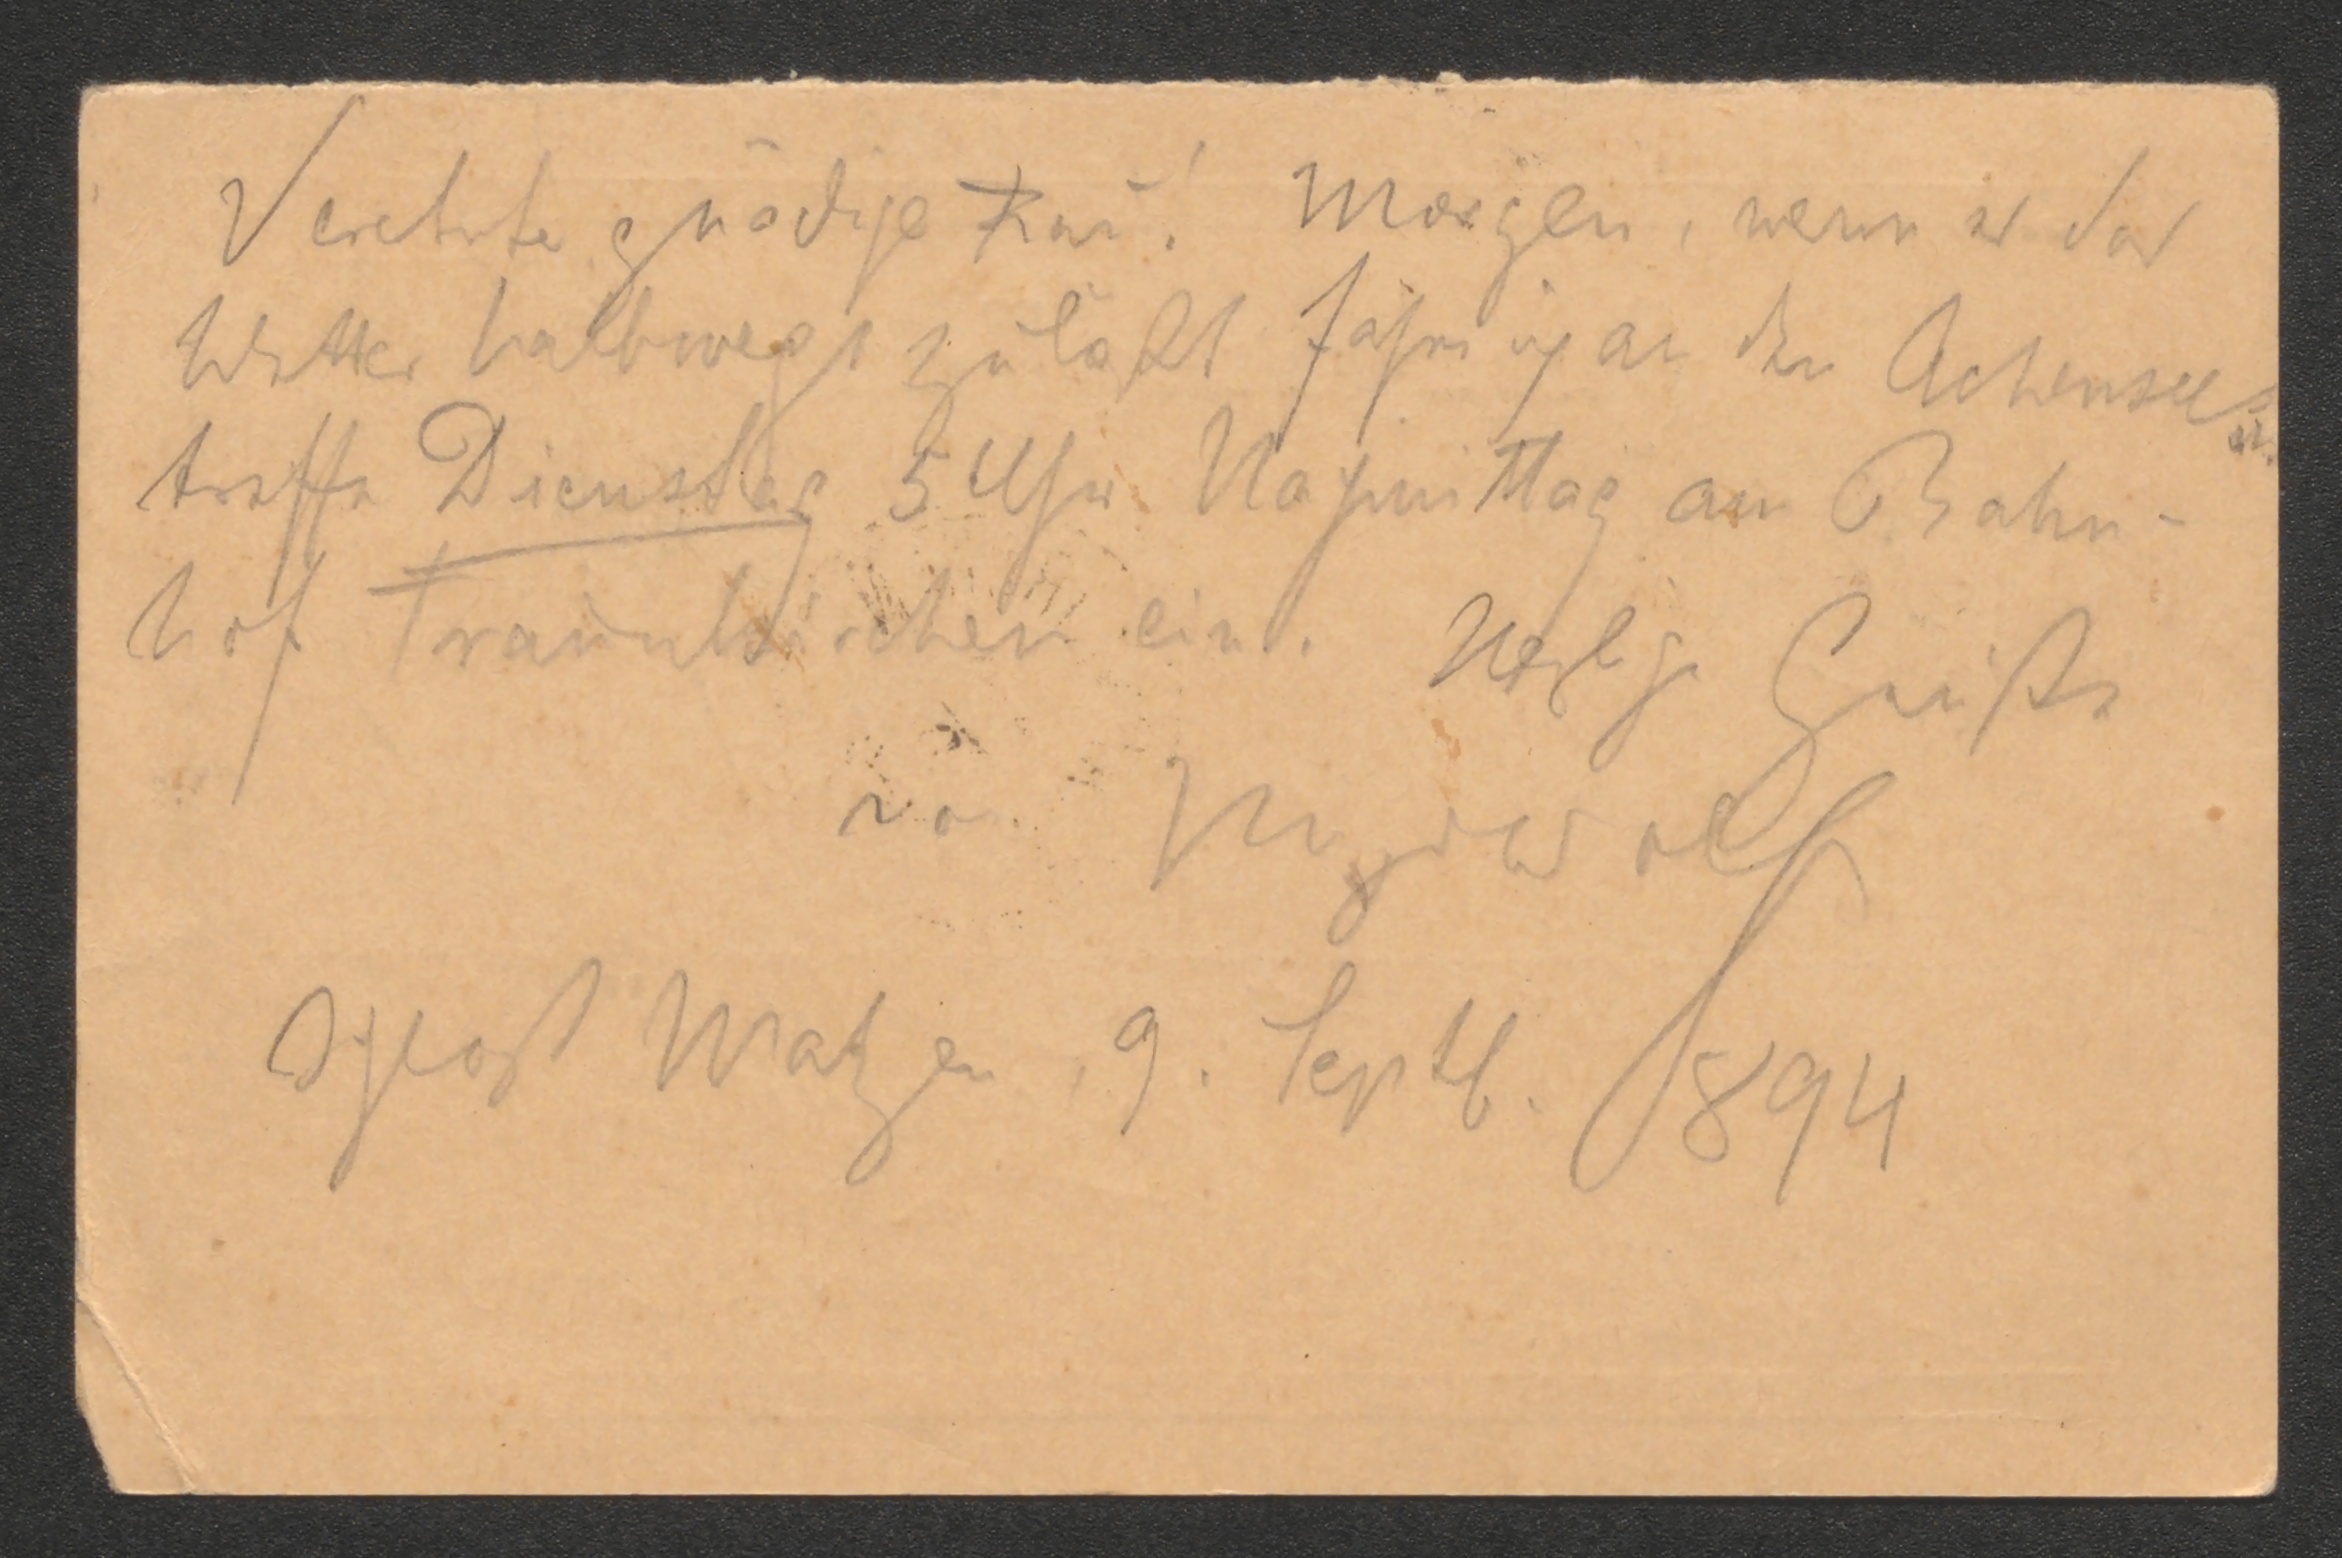 Verehrte gnädige Frau! Morgen, wenn es das
Wetter halbwegs zuläßt fahre ich an den Achensee u.
treffe Dienstag 5 Uhr Nachmittag am Bahn-
hof Traunkirchen ein. Herzlge Grüße
von Hugo Wolf
Schloß Matzen, 9. Septb. 1894